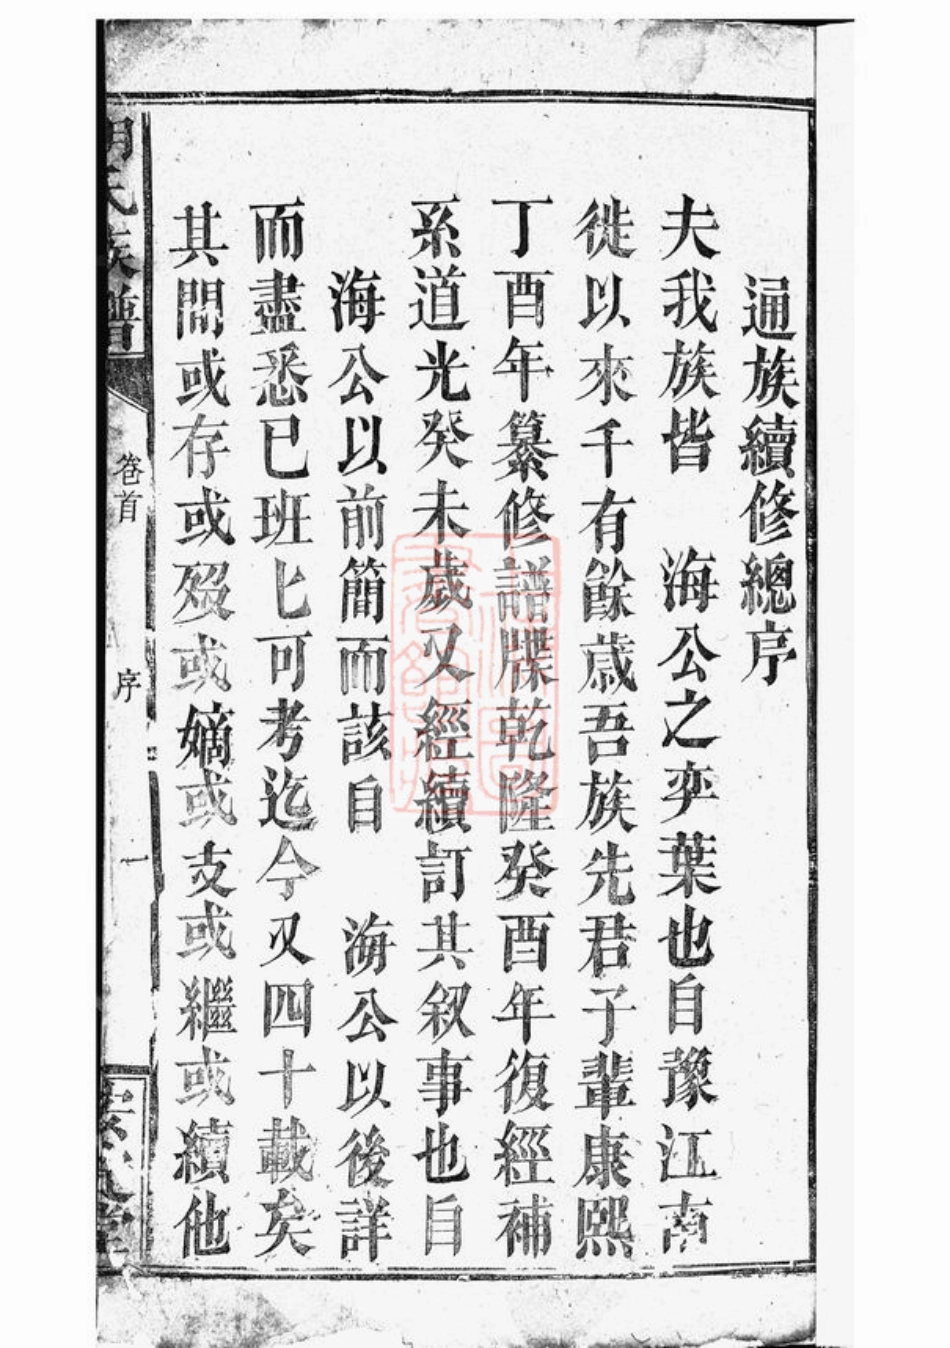 通族續修總序
夫我族皆　海公之奕葉也自豫江南
徙以來千有餘歲吾族先君子輩康熙
丁酉年纂修譜牒乾隆癸酉年復經補
系道光癸未歲又經續訂其叙事也自
海公以前簡而該自　海公以後詳
而盡悉已班匕可考迄今又四十載矣
其間或存或歿或嫡或支或繼或續他
氏族譜
卷首
序
一
堂